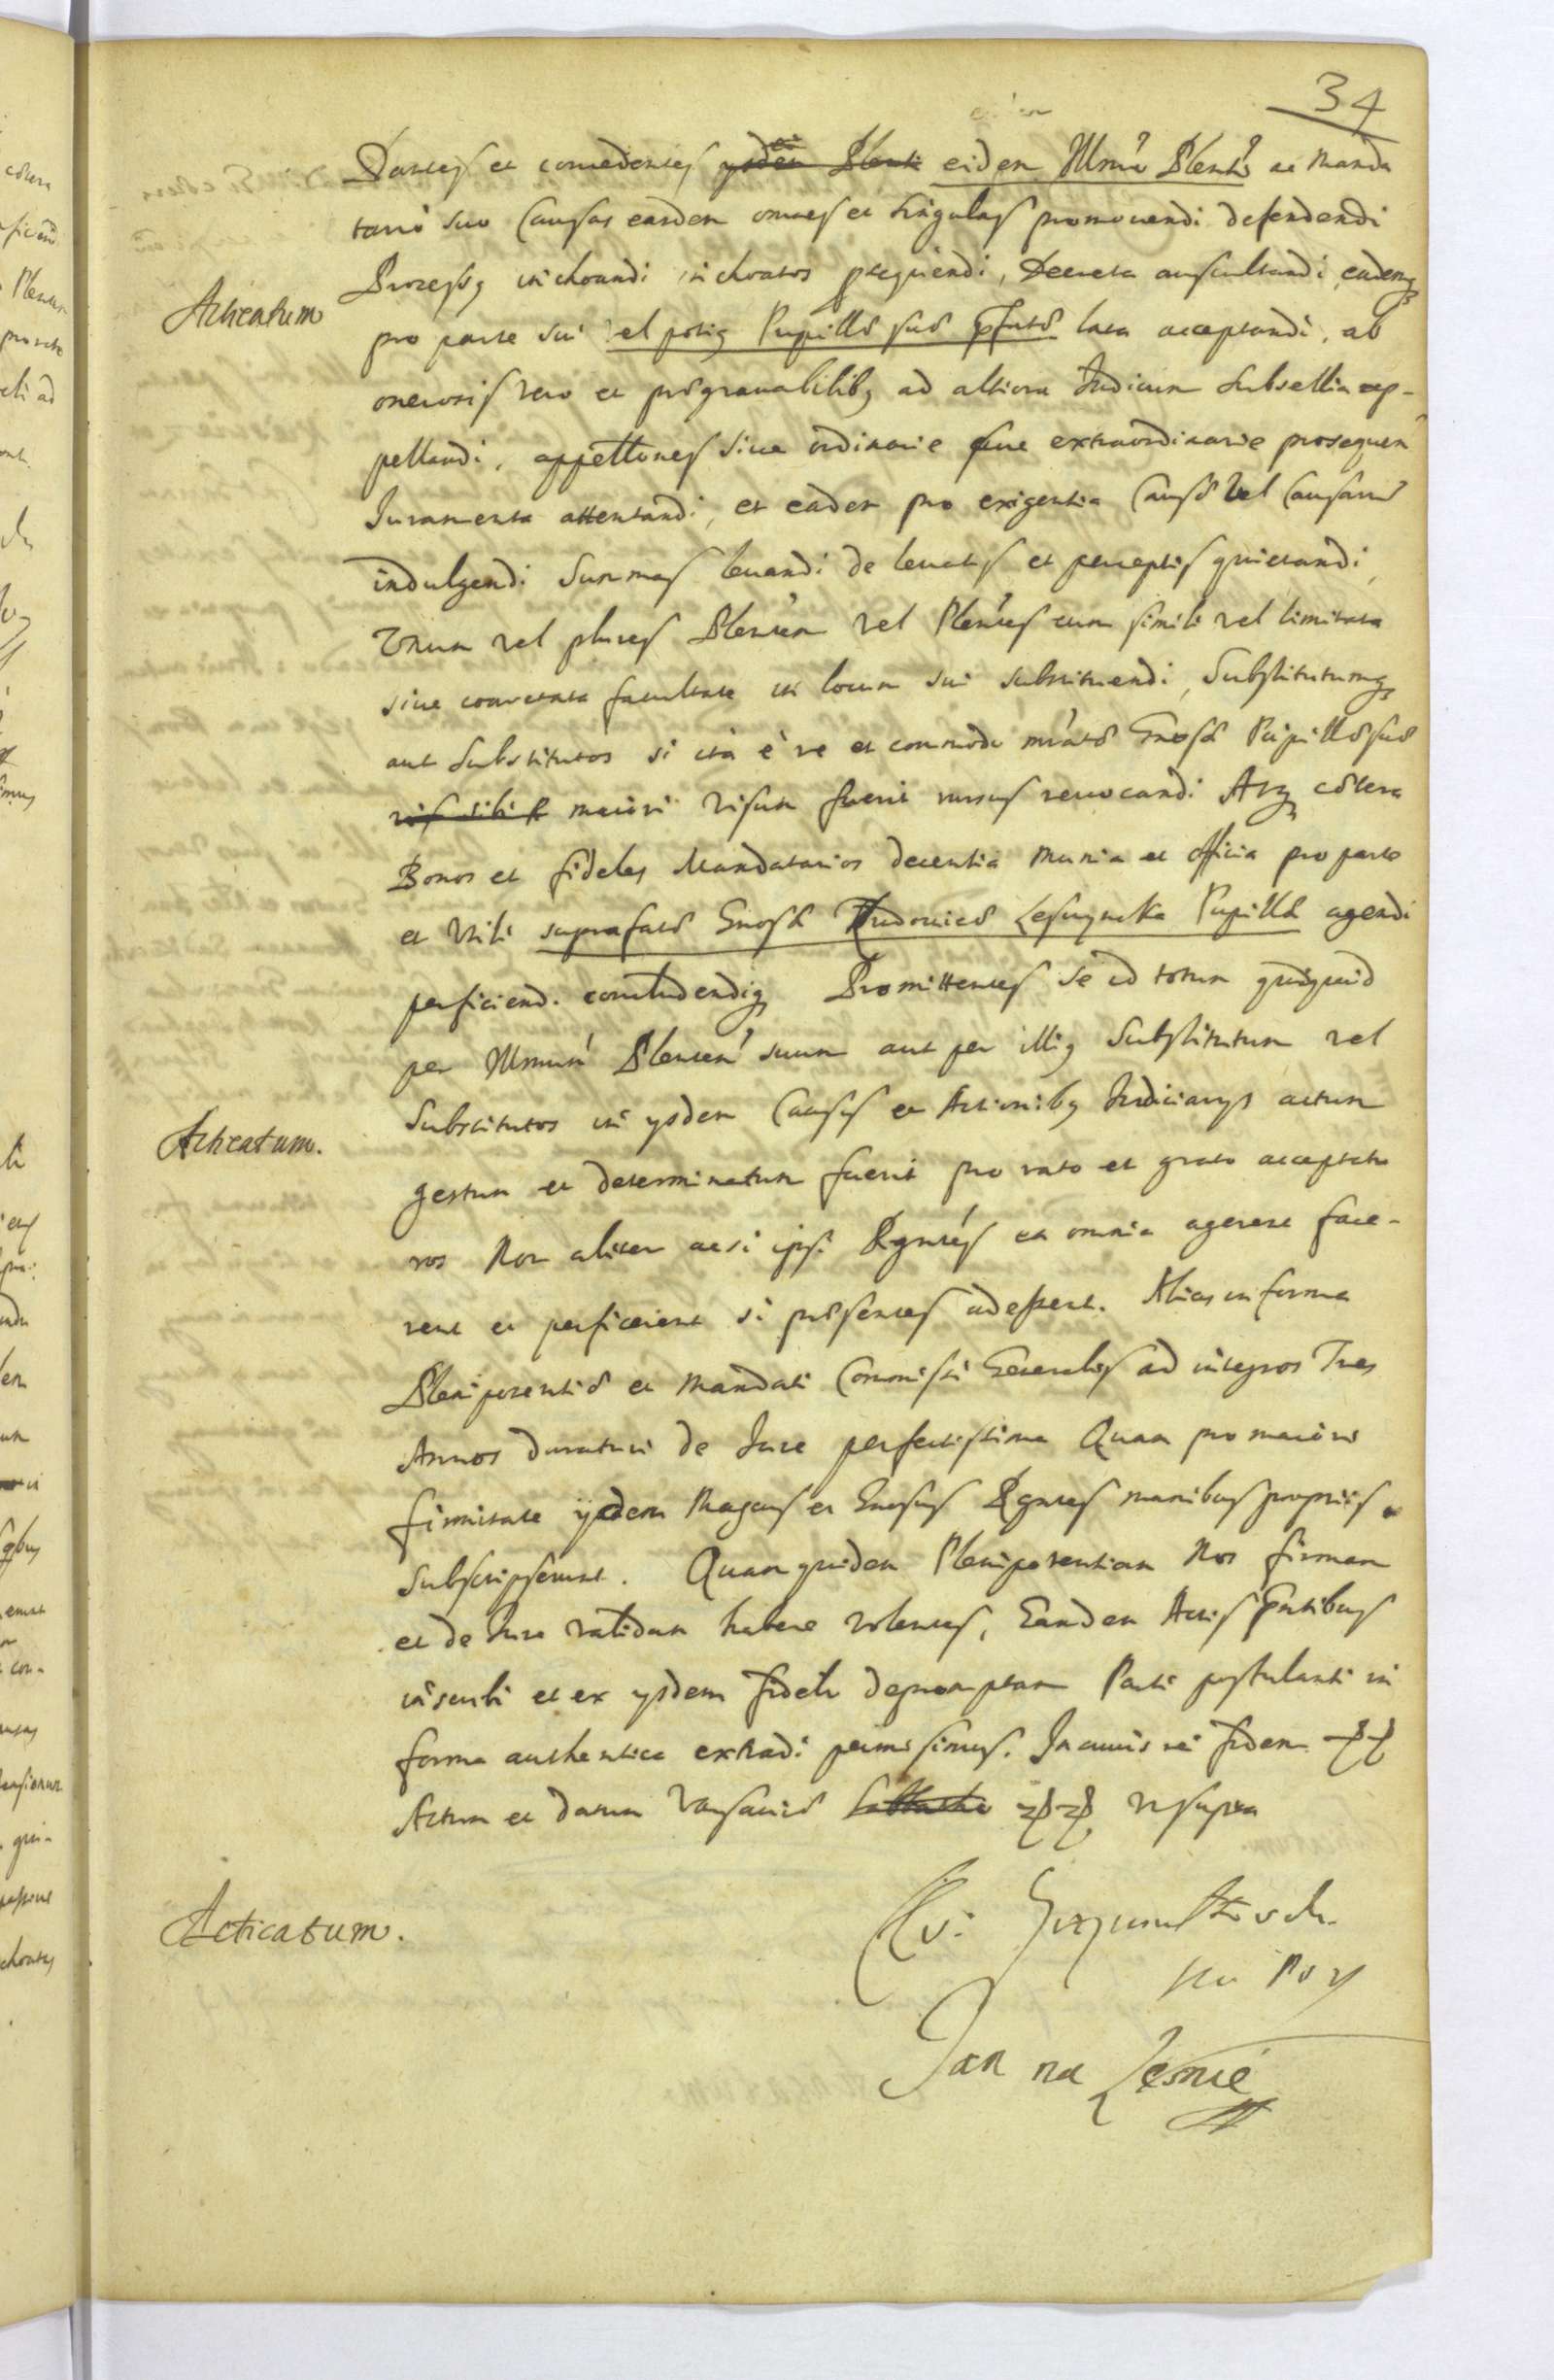 34
Dantes et concedentes eidem Illmo Plenti ac Manda
tario suo Causas easdem omnes et singulas promovendi defendendi
Processq inchoandi inchoatos prosequendi, Decreta auscultandi eademq
Acticatum
pro parte sui vel potiq Pupillæ suæ præfatæ lata acceptandi, ab
onerosis vero et prægravabilibq ad altiora Judiciorum Subsellia ap-
pellandi, appellones sive ordinarie sive extraordinarie prosequen
Juramenta attentandi, et eadem pro exigentia Causæ vel Causarum
indulgendi Summas levandi de levatis et perceptis quietandi,
Unum vel plures Plenten vel Plentes cum simili vel limitata
sive coarctata facultate in locum sui substituendi, Substitutumq
aut Substitutos si ita e re et commodo Gnosæ Pupillæ suæ
maiori visum fuerit rursus revocandi Atq cætera
Bonos et fideles Mandatarios decentia munia et officia pro parte
et Utili suprafatæ Gnosæ Ludovicæ Lesczynska Pupillæ agendi
perficiend. concludendiq Promittentes se id totum quidquid
per Illmum Plenten suum aut per illiq Substitutum vel
Acticatum.
Substitutos in ysdem Causis et Actionibq Judiciarys actum
gestum et determinatum fuerit pro rato et grato acceptatu
ros Non aliter ac si ipsi Pgntes ea omnia agerent face-
rent et perficerent si præsentes adessent. Alias in forma
Plenipotentiæ et Mandati Commissi Generalis ad integros Tres
Annos duraturi de Jure perfectissima Quam pro maiori
firmitate ydem Magcus et Gnosus Pgntes manibus propriis
subscripserunt. Quam quidem Plenipotentiam Nos firmam
et de Jure validam habere volentes, Eandem Actis Pntibus
inscribi et ex ysdem fideli depromptam Parti postulanti in
forma authentica extradi permisimus. In cuius rei fidem
Actum et datum Varsaviæ ut supra
Acticatum.
Jan na Lesnie